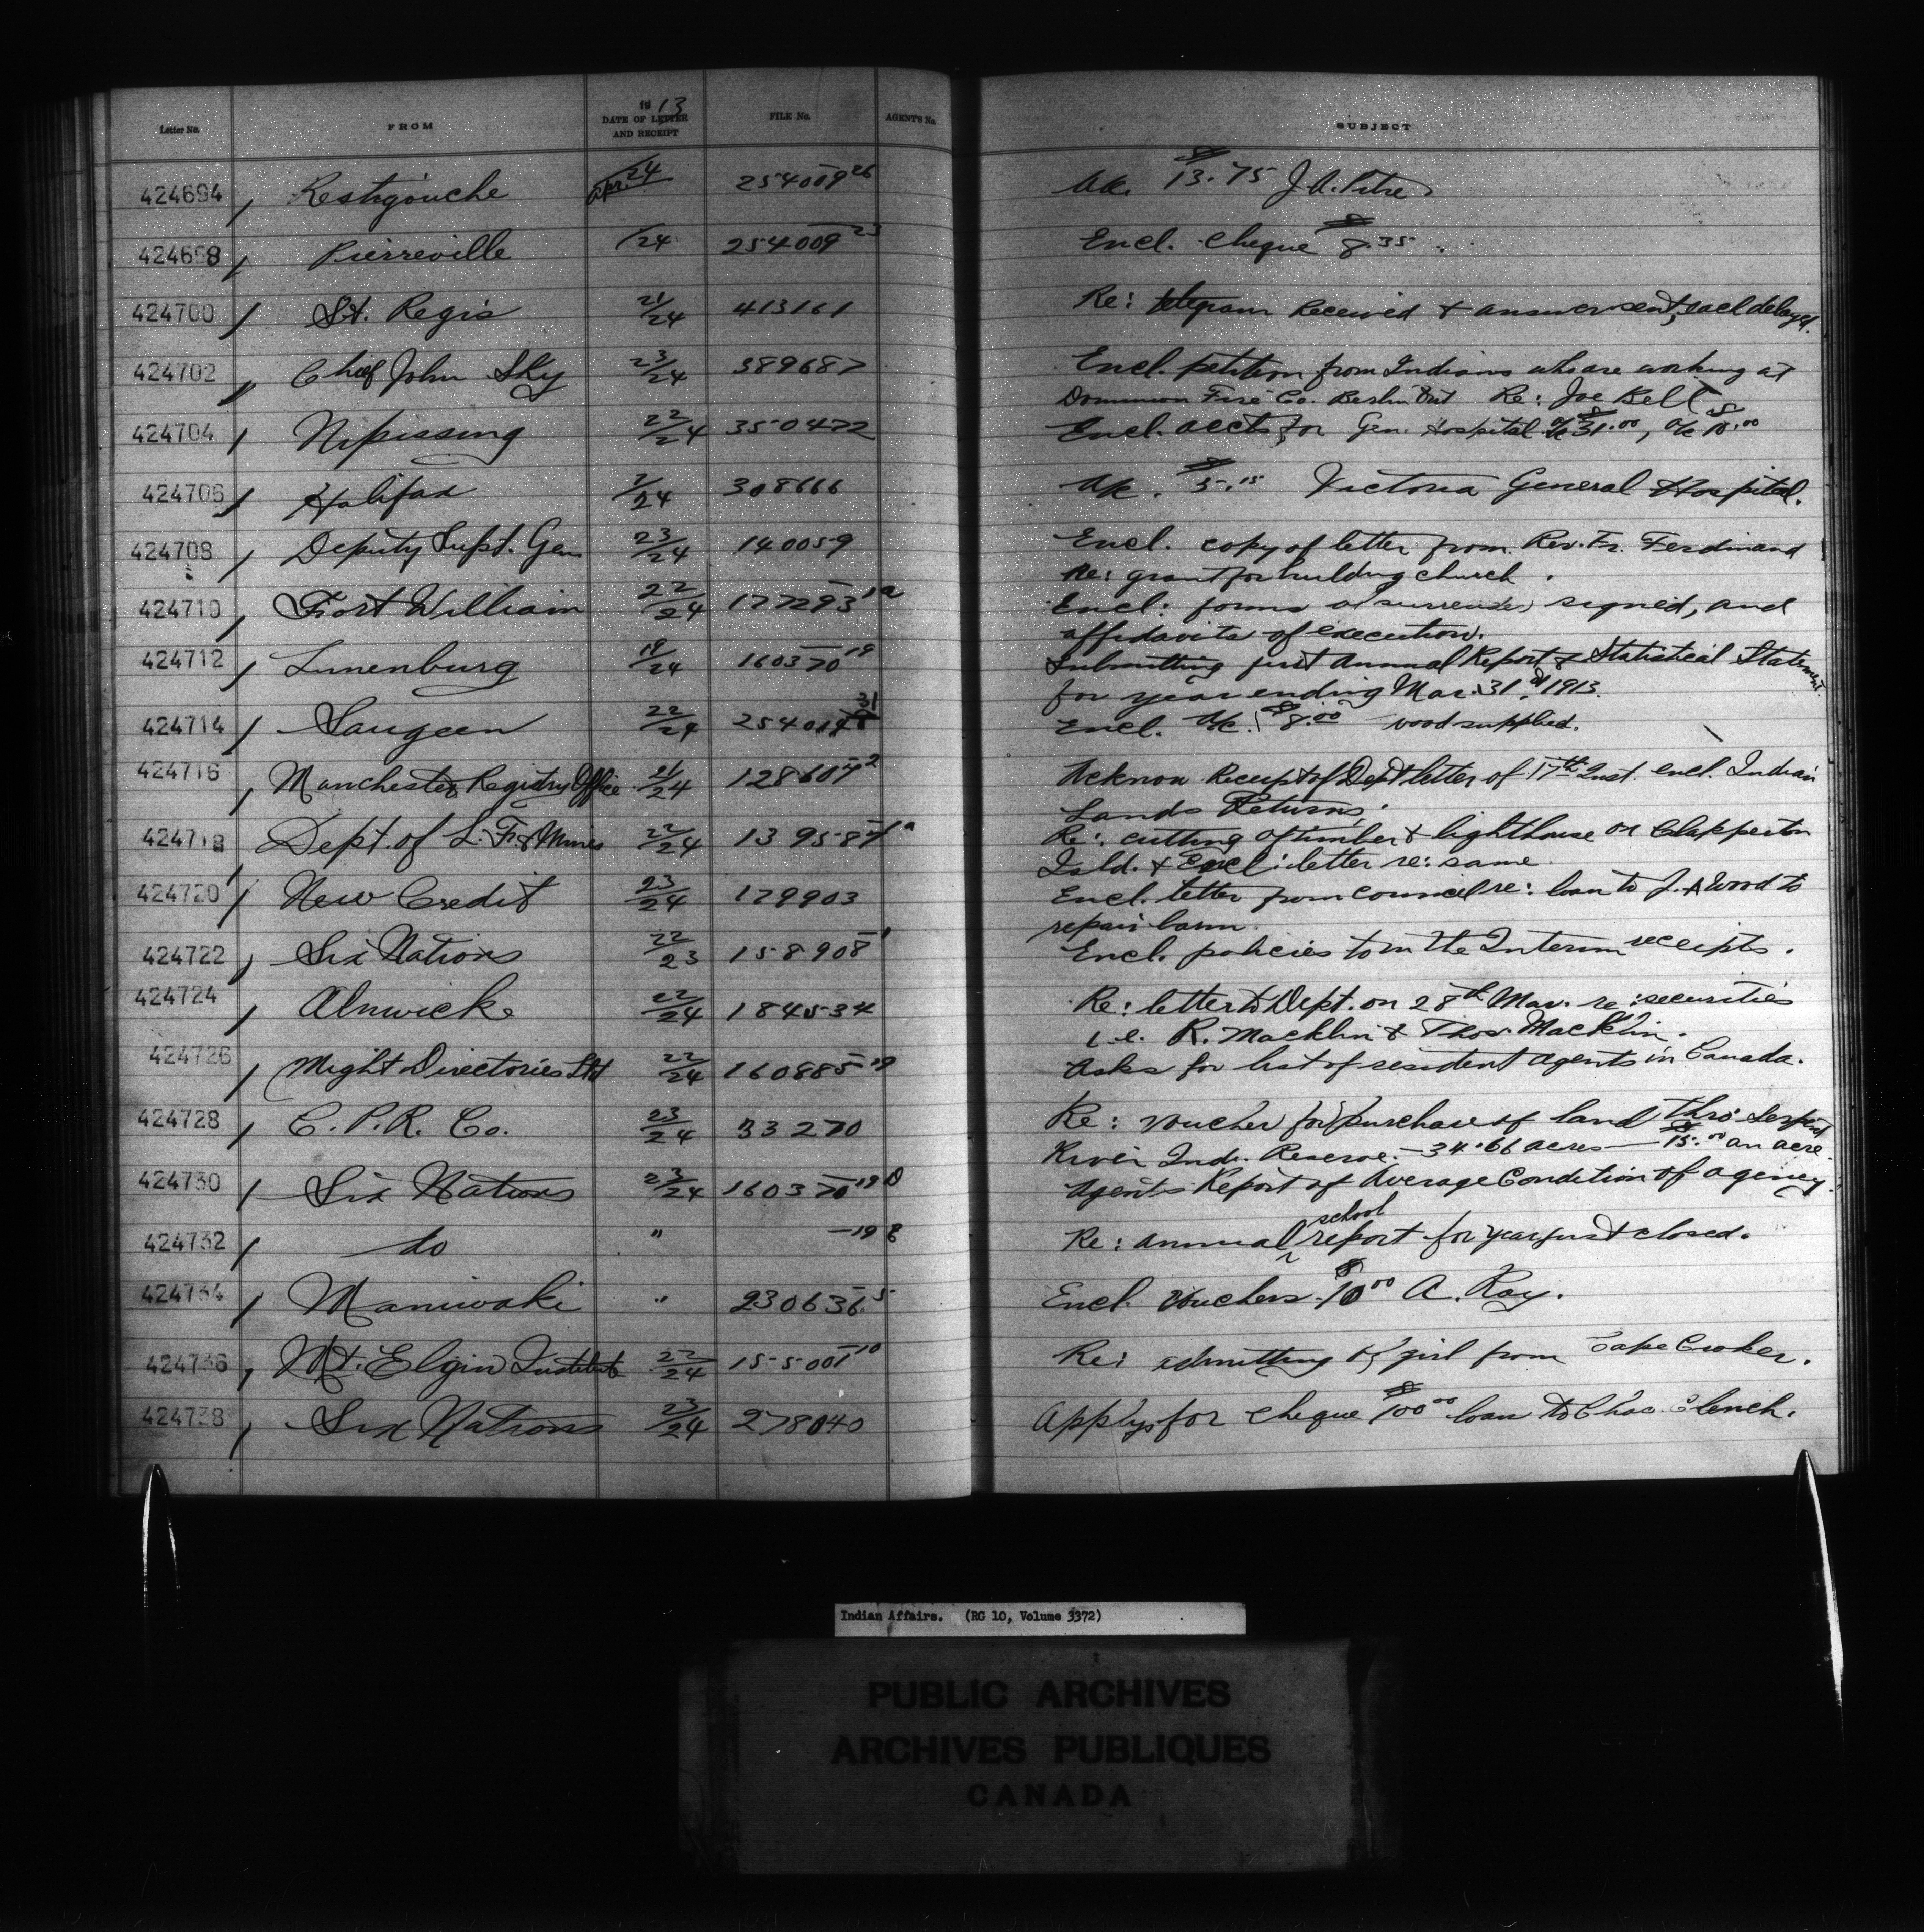 Letter No. FROM 1913 DATE OF LETTER AND RECEIPT FILE No. AGENT'S No. SUBJECT
424694 Restigouche Apr. 24 254009-26 A/c. $13.75 J.A. Pitre
424698 Pierreville /24 254009-23 Encl. cheque $8.35
424700 St. Regis 21/24 413161 Re: telegram received & answer sent, delayed.
424702 Chief John Sky 23/24 389687 Encl. petition from Indians who are working at
Dominion Co. Berlin Ont Re: Joe Bell
424704 Nipissing 22/24 350472 Encl. accts for Gen. Hospital a/c $31.00, a/c $10.00
424706 Halifax /24 308666 A/c. $5.15 Victoria General Hospital.
424708 Deputy Supt. Gen 23/24 140059 Encl. copy of letter from Rev. Fr. Ferdinand
Re: grant for building church.
424710 Fort William 22/24 177293-1a Encl: forms of surrender signed, and
affidavits of execution.
424712 Lunenburg 19/24 160370-19 Submitting first Annual Report & Statistical Statement
for year ending Mar. 31st 1913.
424714 Saugeen 22/24 254014 31 Encl. A/c. $8.00 wood supplied.
424716 Manchester Registry Office 21/24 128607-2 Acknow Receipt of Dept letter of 17th Inst. encl. Indian
Lands Returns.
424718 Dept. of L. F. & Mines 22/24 139587 Re: cutting of timber & lighthouse on Clapperton
Isld. & Encl: letter re: same
424720 New Credit 23/24 179903 Encl. letter from council re: loan to J. A Wood to
repair barn.
424722 Six Nations 22/23 158908-1 Encl. policies the Interim receipts.
424724 Alnwick 22/24 184534 Re: letter to Dept. on 28th Mar. re: securities
i.e. R. Macklin & Thos. Macklin.
424726 Might Directories Ltd 22/24 160885-19 Asks for list of resident agents in Canada.
424728 C.P.R. Co. 23/24 33270 Re: voucher for purchase of land thro' Serpent
River Ind. Reserve. — 34.66 acres — $15.00 an acre.
424730 Six Nations 23/24 160370-19D Agents Report of Average Condition of agency.
424732 do " -19 Re: annual school report for year just closed.
424734 Maniwaki " 230636-5 Encl. vouchers $10.00 A. Ray.
424736 Mt. Elgin Institute 22/24 155001-10 Re: admitting of girl from Cape Croker.
424738 Six Nations 23/24 278040 Applys for cheque $100.00 loan to Chas. Clench.
Indian Affairs. (RG 10, Volume 3372)
PUBLIC ARCHIVES
ARCHIVES PUBLIQUES
CANADA